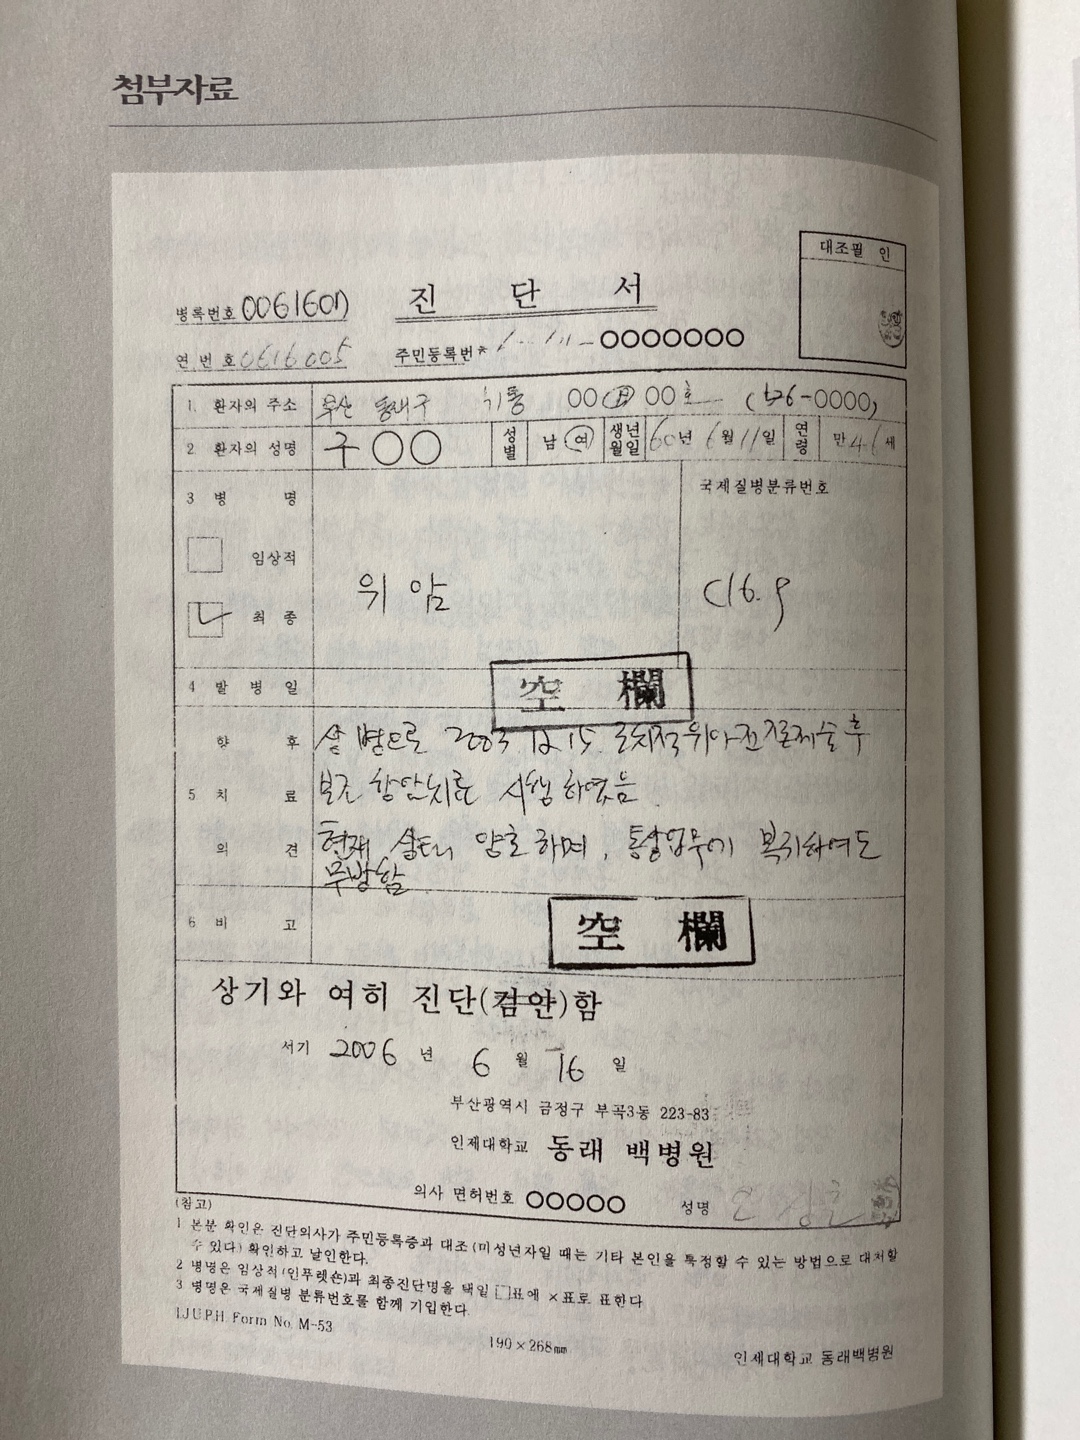 첨부자료
대조필 인
병록번호 0061601
진 단 서
연 번 호 0616005
주민등록번 ○○○○○○○
1. 환자의 주소 부산 동래구 ○○ ○○호 ( -0000)
2 환자의 성명 구 ○○ 성별 남 여 생년월일 60년 6월 11일 연령 만 46세
3 병 명 국제질병분류번호
임상적
최 종 위암 C16.9
4 발 병 일 空 欄
향 후 상 병으로 2003. 12. 15. 후
5 치 료 보조 항암치료 시행하였음
의 견 현재 상태 양호하며, 통상업무에 복귀하여도
무방함
6 비 고 空 欄
상기와 여히 진단(검안)함
서기 2006 년 6 월 16 일
부산광역시 금정구 부곡3동 223-83
인제대학교 동래 백병원
의사 면허번호 ○○○○○ 성명
(참고)
1 본분 확인은 진단의사가 주민등록증과 대조(미성년자일 때는 기타 본인을 특정할 수 있는 방법으로 대처할
수 있다) 확인하고 날인한다.
2 병명은 임상적(인푸렛숀)과 최종진단명을 택일 □표에 ×표로 표한다
3 병명은 국제질병 분류번호를 함께 기입한다.
I.J.U.P.H. Form No. M-53
190×268㎜
인제대학교 동래백병원